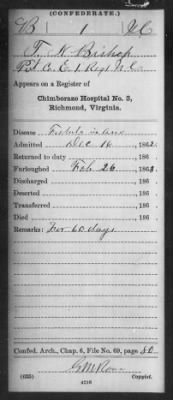 (CONFEDERATE.)
B 1 N.C.
T. K. Bishop
Pvt Co. E, 1 Regt N.C.
Appears on a Register of
Chimborazo Hospital No. 3,
Richmond, Virginia.
Disease
Admitted Dec 16, 1862.
Returned to duty , 186 .
Furloughed Feb 26, 1863.
Discharged , 186 .
Deserted , 186 .
Transferred , 186 .
Died , 186 .
Remarks: For 60 days
Confed. Arch., Chap. 6, File No. 69, page 80
(635) 4216 Copyist.